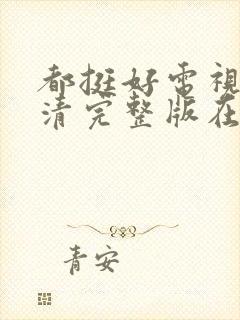 都挺好电视
清完整版在
青安